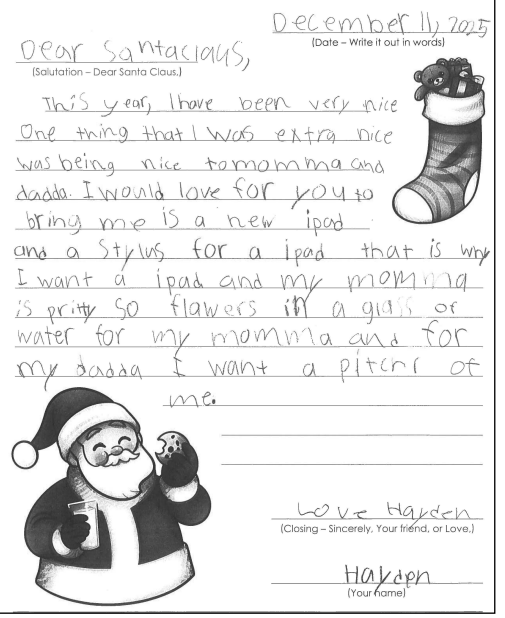 December 11, 2025
(Date – Write it out in words)
Dear Santaclaus,
(Salutation – Dear Santa Claus,)
This year, I have been very nice
One thing that I was extra nice
was being nice to momma and
dadda. I would love for you to
bring me is a new ipad
and a Stylus for a ipad that is why
I want a ipad and my momma
is pritty so flawers in a glass of
water for my momma and for
my dadda I want a pitchr of
me.
Love Hayden
(Closing – Sincerely, Your friend, or Love,)
Hayden
(Your name)